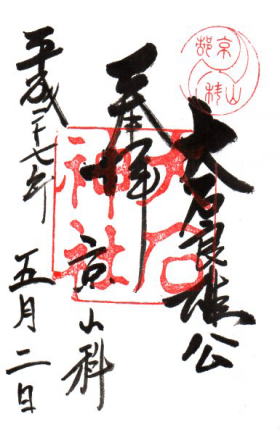 京都
山科
奉拝
大石良雄公
大石
神社
京山科
平成二十七年
五月二日